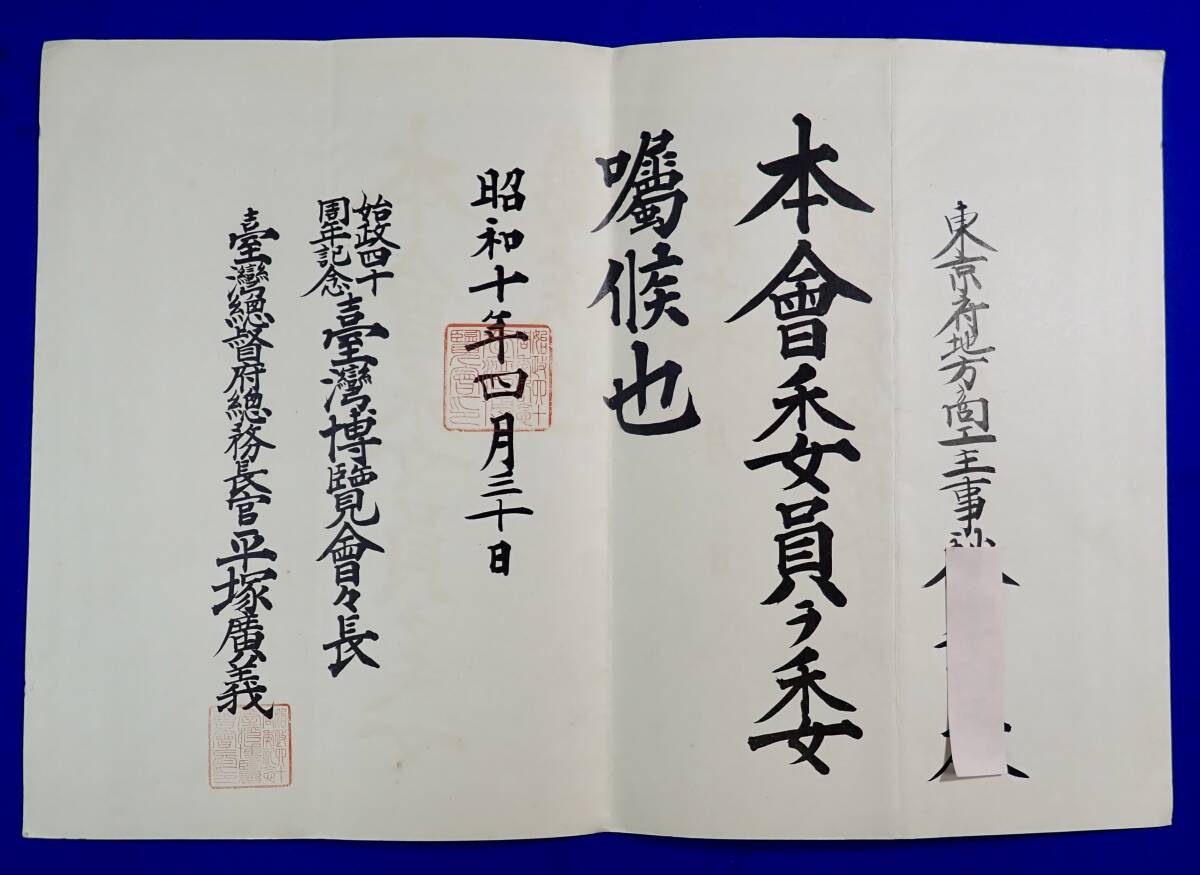 東京府地方商工主事
本會委員ヲ委
囑候也
昭和十年四月三十日
始政四十
周年記念
臺灣博覽會々長
臺灣總督府總務長官平塚廣義